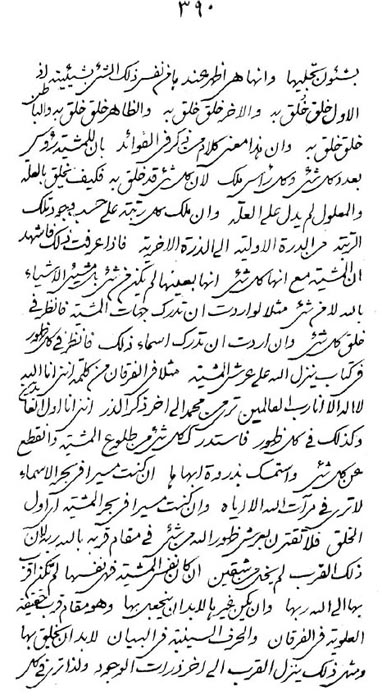 ٣٩٠
بشئون تجليها وانها هي اظهر عند بها من نفس ذلك الشئ بشيئيته اذ
الاول خلق خلق به والاخر خلق خلق به والظاهر خلق خلق به والباطن
خلق خلق به وان هذا معنى كلام من ذكر في الفوائد بان للمشية رؤس
بعدد كل شئ وكل رأس ملك لان كل شئ قد خلق به فكيف يخلق بالعلة
والمعلول لم يدل على العلة وان ملك كل رتبة على حسب وجود تلك
الرتبة من الذرة الاولية الى الذرة الاخرية فاذا عرفت ذلك فاشهد
ان المشية مع انها كل شئ انها بعينها لم تكن من شئ بل مشيئ الاشياء
بالله لا من شئ مثلا لو اردت ان تدرك جهات المشية فانظر في
خلق كل شئ وان اردت ان تدرك اسماء ذلك فانظر في كل ظهور
في كتاب ينزل الله على عرش المشية مثلا في الفرقان من كلمة انني انا الله
لا اله الا انا رب العالمين ترى من محمد الى اخر ذكر الذر انني انا اول
وكذلك في كل ظهور فاستدرك كل شئ من طلوع المشية وانقطع
عن كل شئ واستمسك بذروة ابهاها ان كنت سيرا في بحر الاسماء
لا ترى في مرآت الله الا اياه وان كنت سيرا في بحر المشية اراول
الخلق فلا تقترن بعرش ظهور الله من شئ في مقام قربه بالله ربه لان
ذلك القرب لم يخل من شقين ان كان نفس المشية فهي نفسها لم تكن اقرب
بها الى الله ربها وان يكن غيرها لابد ان يتجلى بها وهو مقام قرب الحقيقة
العلوية في الفرقان والحرف السينية في البيان لابد ان يخلق بها
ومثل ذلك ينزل القرب الى اخر ذرات الوجود ولذا ترى في كل